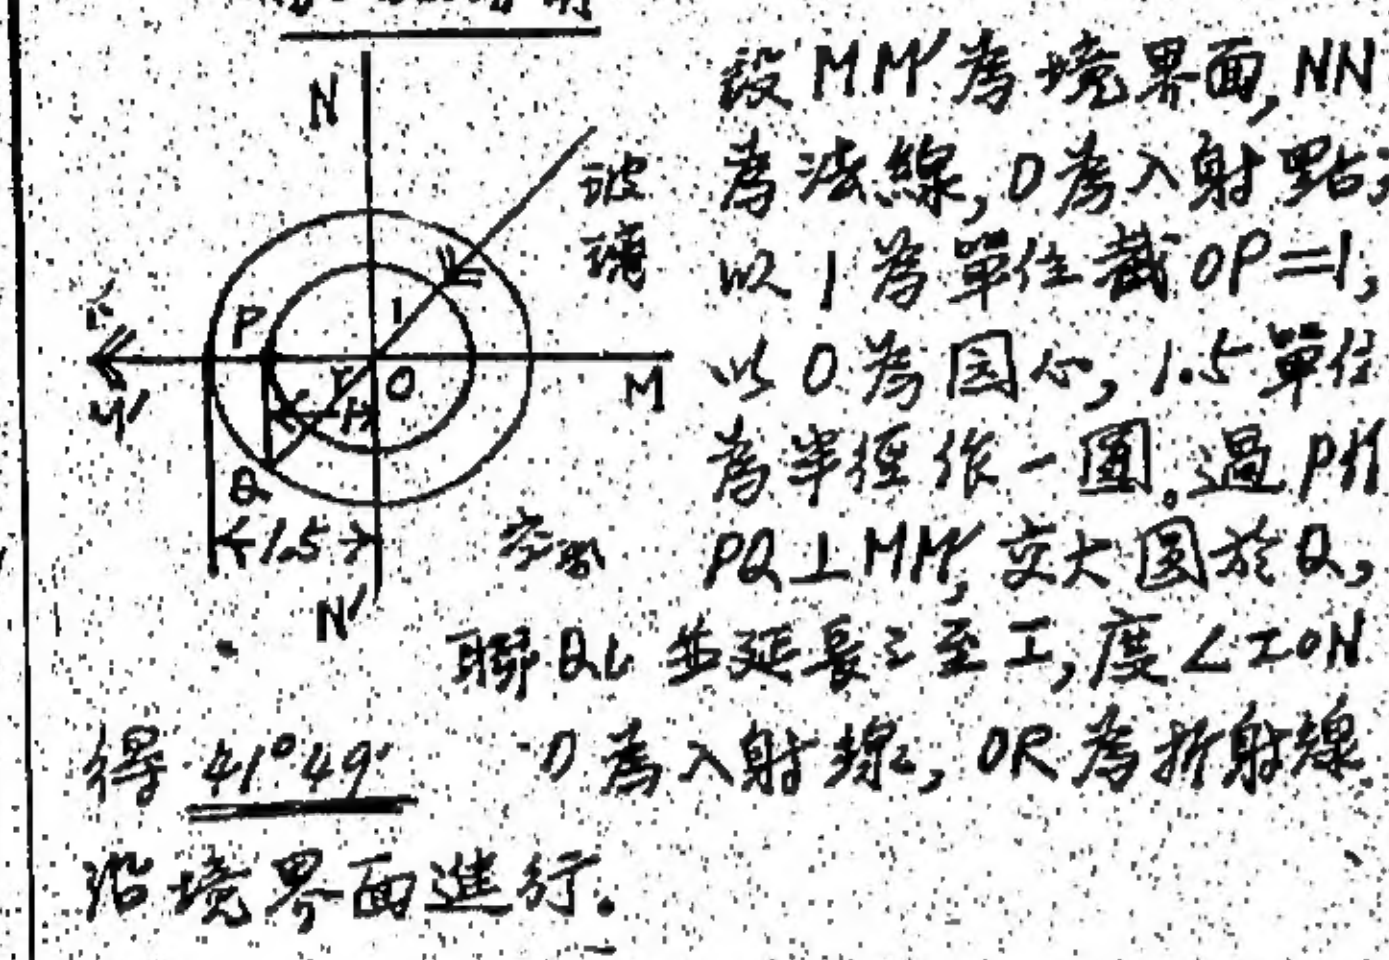 N
玻
璃
P
I
r
O
M
M'
Q
1
←1.5→
空氣
N'
設MM'為境界面,NN
為法線,O為入射點;
以1為單位截OP=1,
以O為园心,1.5單位
為半徑作一圓。過P作
PQ⊥MM',交大圓於Q,
聯QO並延長之至I,度∠ION
得41°49' O為入射線,OR為折射線
沿境界面進行。